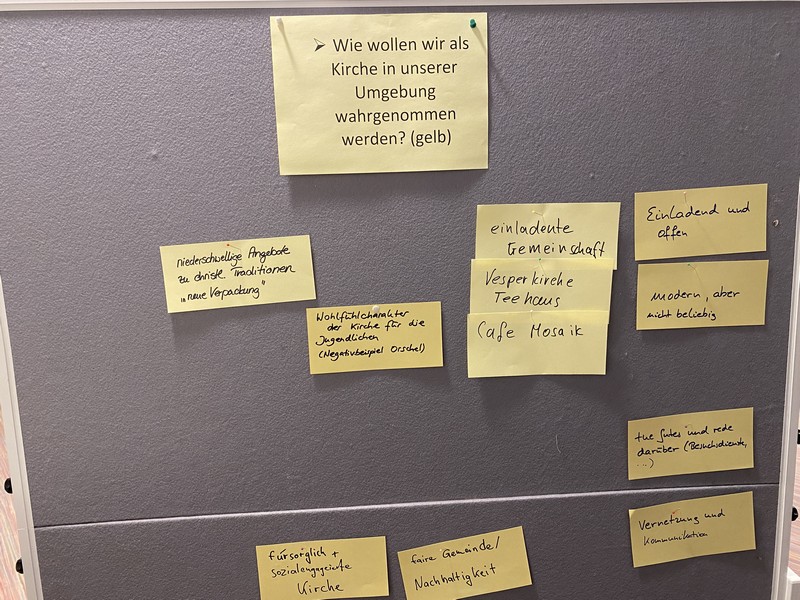 ➢ Wie wollen wir als
Kirche in unserer
Umgebung
wahrgenommen
werden? (gelb)
niederschwellige Angebote
zu christl. Traditionen
"neue Verpackung"
Wohlfühlcharakter
der Kirche für die
Jugendlichen
(Negativbeispiel Orschel)
einladente
Gemeinschaft
Vesperkirche
Teehaus
Cafe Mosaik
Einladend und
offen
modern, aber
nicht beliebig
tue Gutes und rede
darüber (Besuchsdienste,
...)
Vernetzung und
Kommunikation
fürsorglich +
sozialengagierte
Kirche
faire Gemeinde/
Nachhaltigkeit